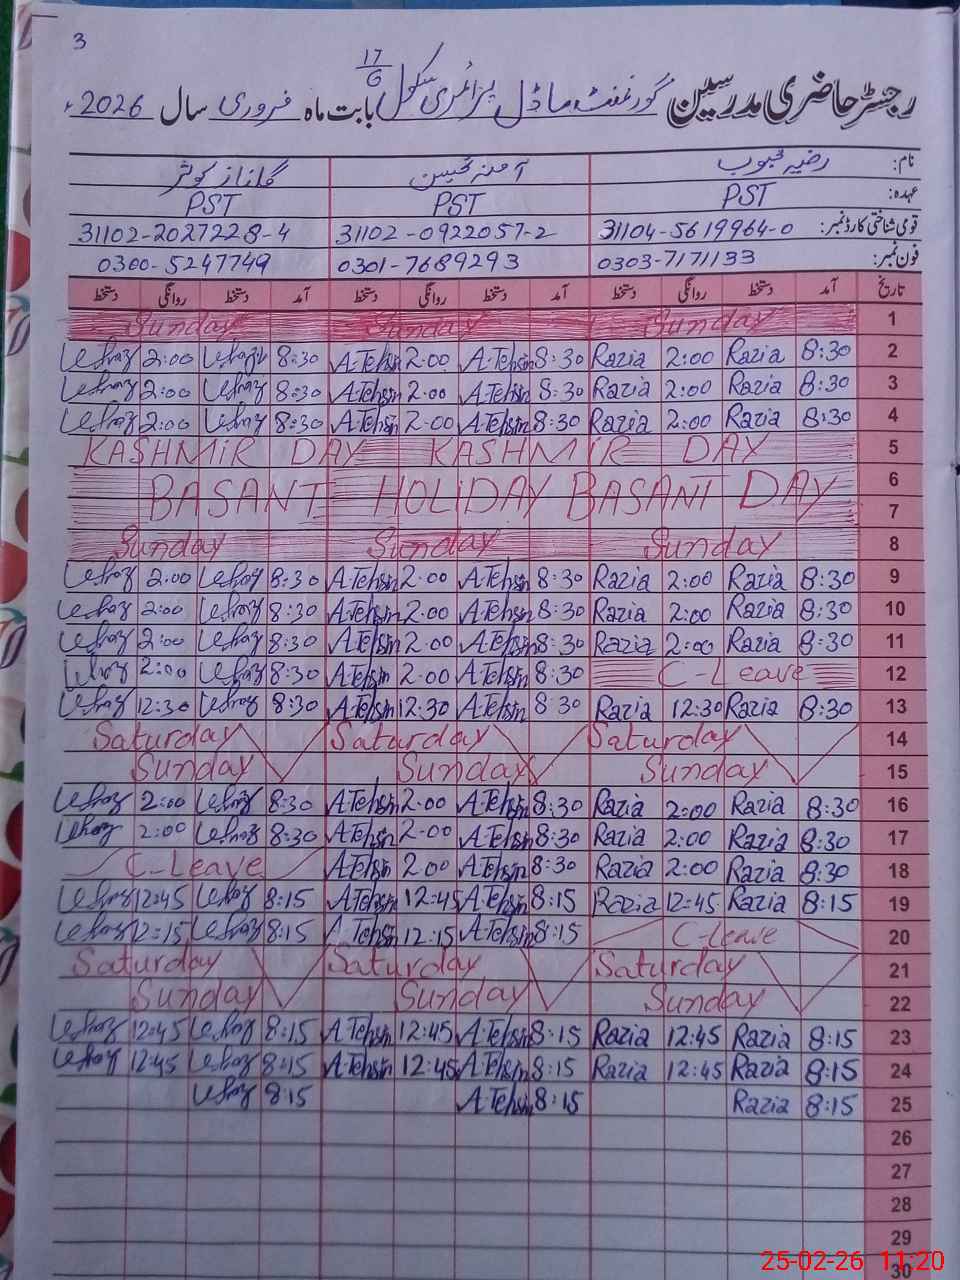 3
رجسٹر حاضری مدرسین گورنمنٹ ماڈل پرائمری سکول 17/G بابت ماہ فروری سال 2026ء
نام: رضیہ محبوب آمنہ تحسین گلناز کوثر
عہدہ: PST PST PST
قومی شناختی کارڈ نمبر: 31104-5619964-0 31102-0922057-2 31102-2027228-4
فون نمبر: 0303-7171133 0301-7689293 0300-5247749
تاریخ آمد دستخط روانگی دستخط آمد دستخط روانگی دستخط آمد دستخط روانگی دستخط
1 Sunday Sunday Sunday
2 8:30 Razia 2:00 Razia 8:30 A.Tehsin 2:00 A.Tehsin 8:30 2:00
3 8:30 Razia 2:00 Razia 8:30 A.Tehsin 2:00 A.Tehsin 8:30 2:00
4 8:30 Razia 2:00 Razia 8:30 A.Tehsin 2:00 A.Tehsin 8:30 2:00
5 KASHMIR DAY KASHMIR DAY
6
7 BASANT HOLIDAY BASANT DAY
8 Sunday Sunday Sunday
9 8:30 Razia 2:00 Razia 8:30 A.Tehsin 2:00 A.Tehsin 8:30 2:00
10 8:30 Razia 2:00 Razia 8:30 A.Tehsin 2:00 A.Tehsin 8:30 2:00
11 8:30 Razia 2:00 Razia 8:30 A.Tehsin 2:00 A.Tehsin 8:30 2:00
12 C-Leave 8:30 A.Tehsin 2:00 A.Tehsin 8:30 2:00
13 8:30 Razia 12:30 Razia 8:30 A.Tehsin 12:30 A.Tehsin 8:30 12:30
14 Saturday Saturday Saturday
15 Sunday Sunday Sunday
16 8:30 Razia 2:00 Razia 8:30 A.Tehsin 2:00 A.Tehsin 8:30 2:00
17 8:30 Razia 2:00 Razia 8:30 A.Tehsin 2:00 A.Tehsin 8:30 2:00
18 8:30 Razia 2:00 Razia 8:30 A.Tehsin 2:00 A.Tehsin C-Leave
19 8:15 Razia 12:45 Razia 8:15 A.Tehsin 12:45 A.Tehsin 8:15 12:45
20 C-Leave 8:15 A.Tehsin 12:15 A.Tehsin 8:15 12:15
21 Saturday Saturday Saturday
22 Sunday Sunday Sunday
23 8:15 Razia 12:45 Razia 8:15 A.Tehsin 12:45 A.Tehsin 8:15 12:45
24 8:15 Razia 12:45 Razia 8:15 A.Tehsin 12:45 A.Tehsin 8:15 12:45
25 8:15 Razia 8:15 A.Tehsin 8:15
26
27
28
29
30
25-02-26 11:20